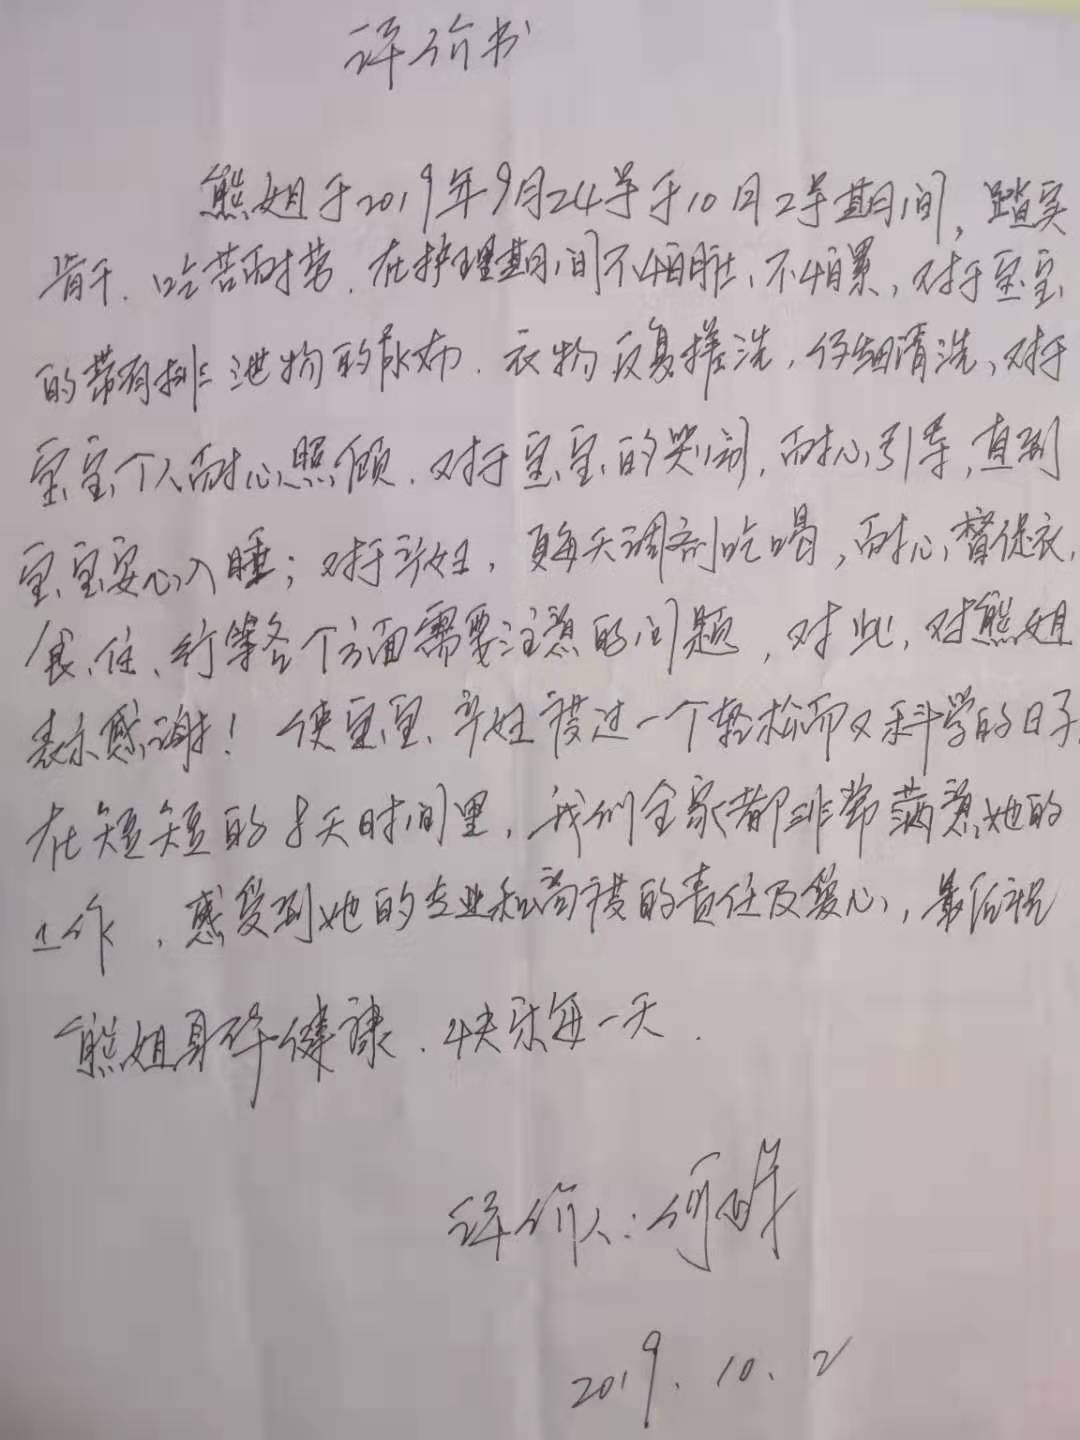 评价书
熊姐于2019年9月24号于10月2号期间，踏实
肯干、吃苦耐劳、在护理期间不怕脏、不怕累，对于宝宝
的带有排泄物的尿布、衣物反复搓洗，仔细清洗、对于
宝宝个人耐心照顾、对于宝宝的哭闹，耐心引导，直到
宝宝安心入睡；对于产妇，每天调剂吃喝，耐心督促衣、
食、住、行等各个方面需要注意的问题，对此，对熊姐
表示感谢！使宝宝、产妇度过一个轻松而又科学的日子，
在短短的8天时间里，我们全家都非常满意她的
工作，感受到她的专业和高度的责任及爱心，最后祝
熊姐身体健康、快乐每一天．
评价人：何
2019.10.2